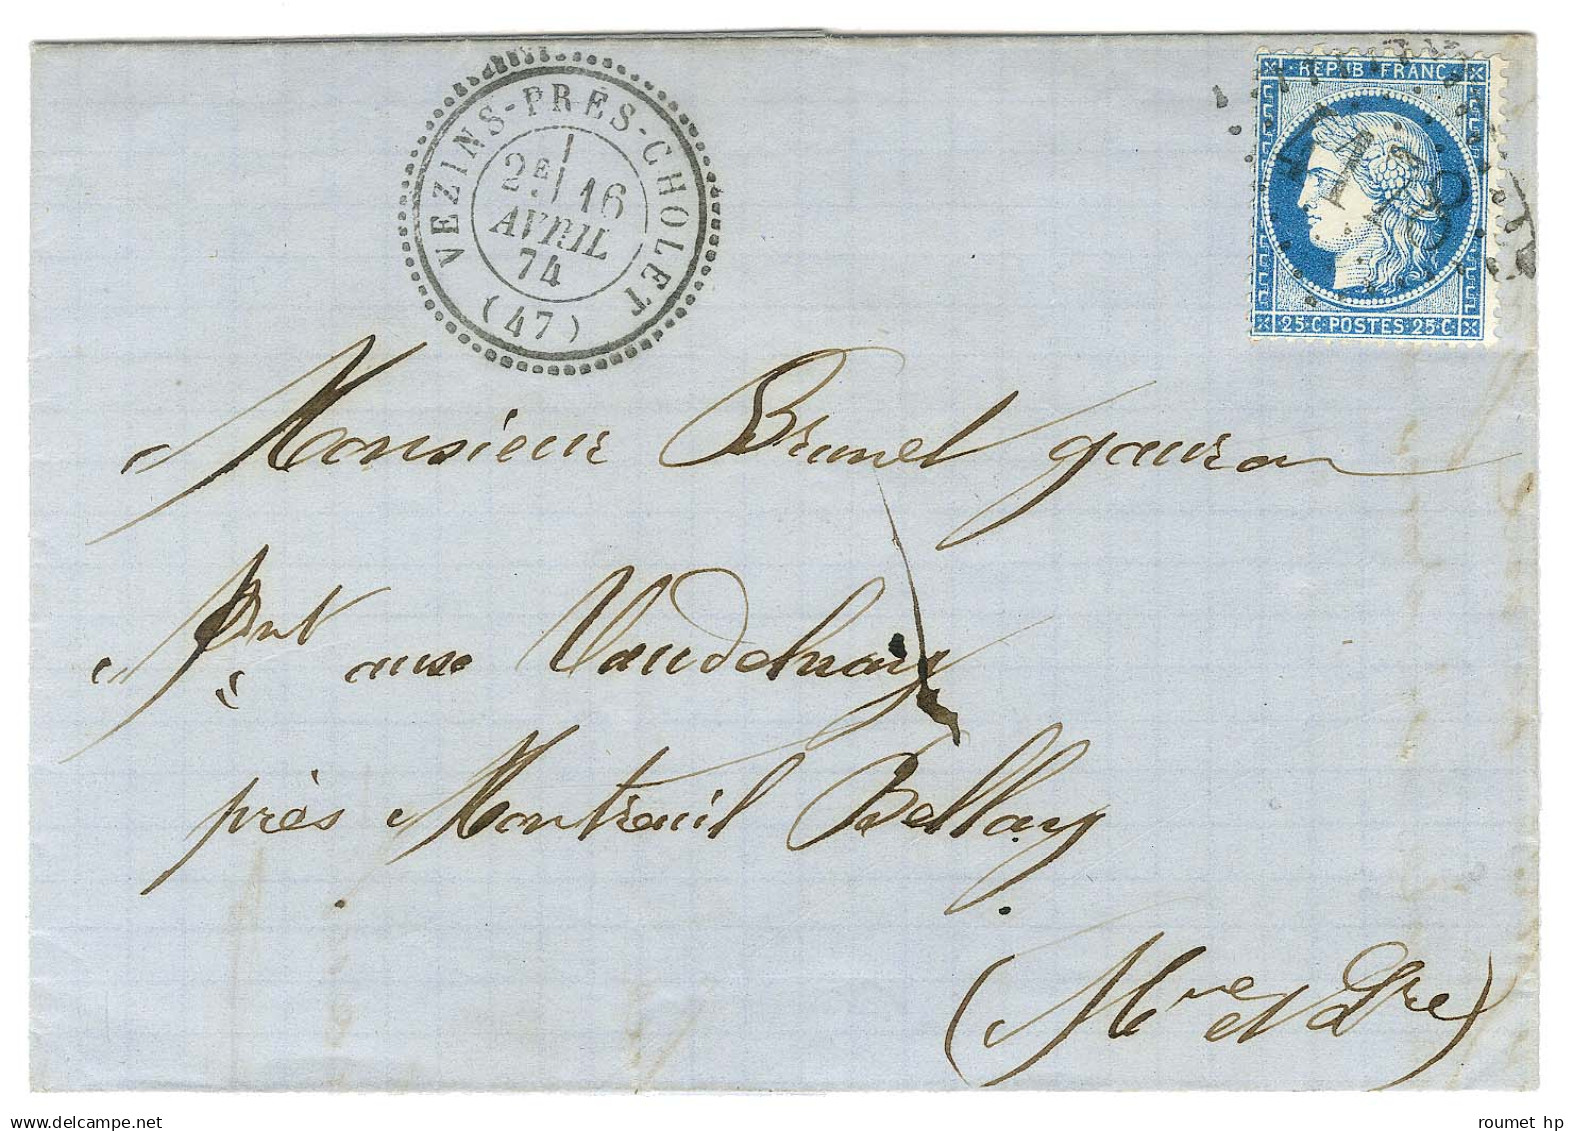 VEZINS-PRES-CHOLET
2E 16
AVRIL
74
(47)
REPUB FRANC
25 C POSTES 25 C
Monsieur Brunel
aux Vaudelnay
près Montreuil Bellay
(Mne et Lre)
delcampe.net
roumet hp